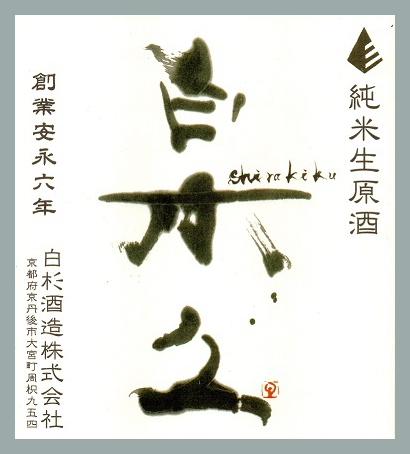 純米生原酒
白木久
shirakiku
創業安永六年
白杉酒造株式会社
京都府京丹後市大宮町周枳九五四